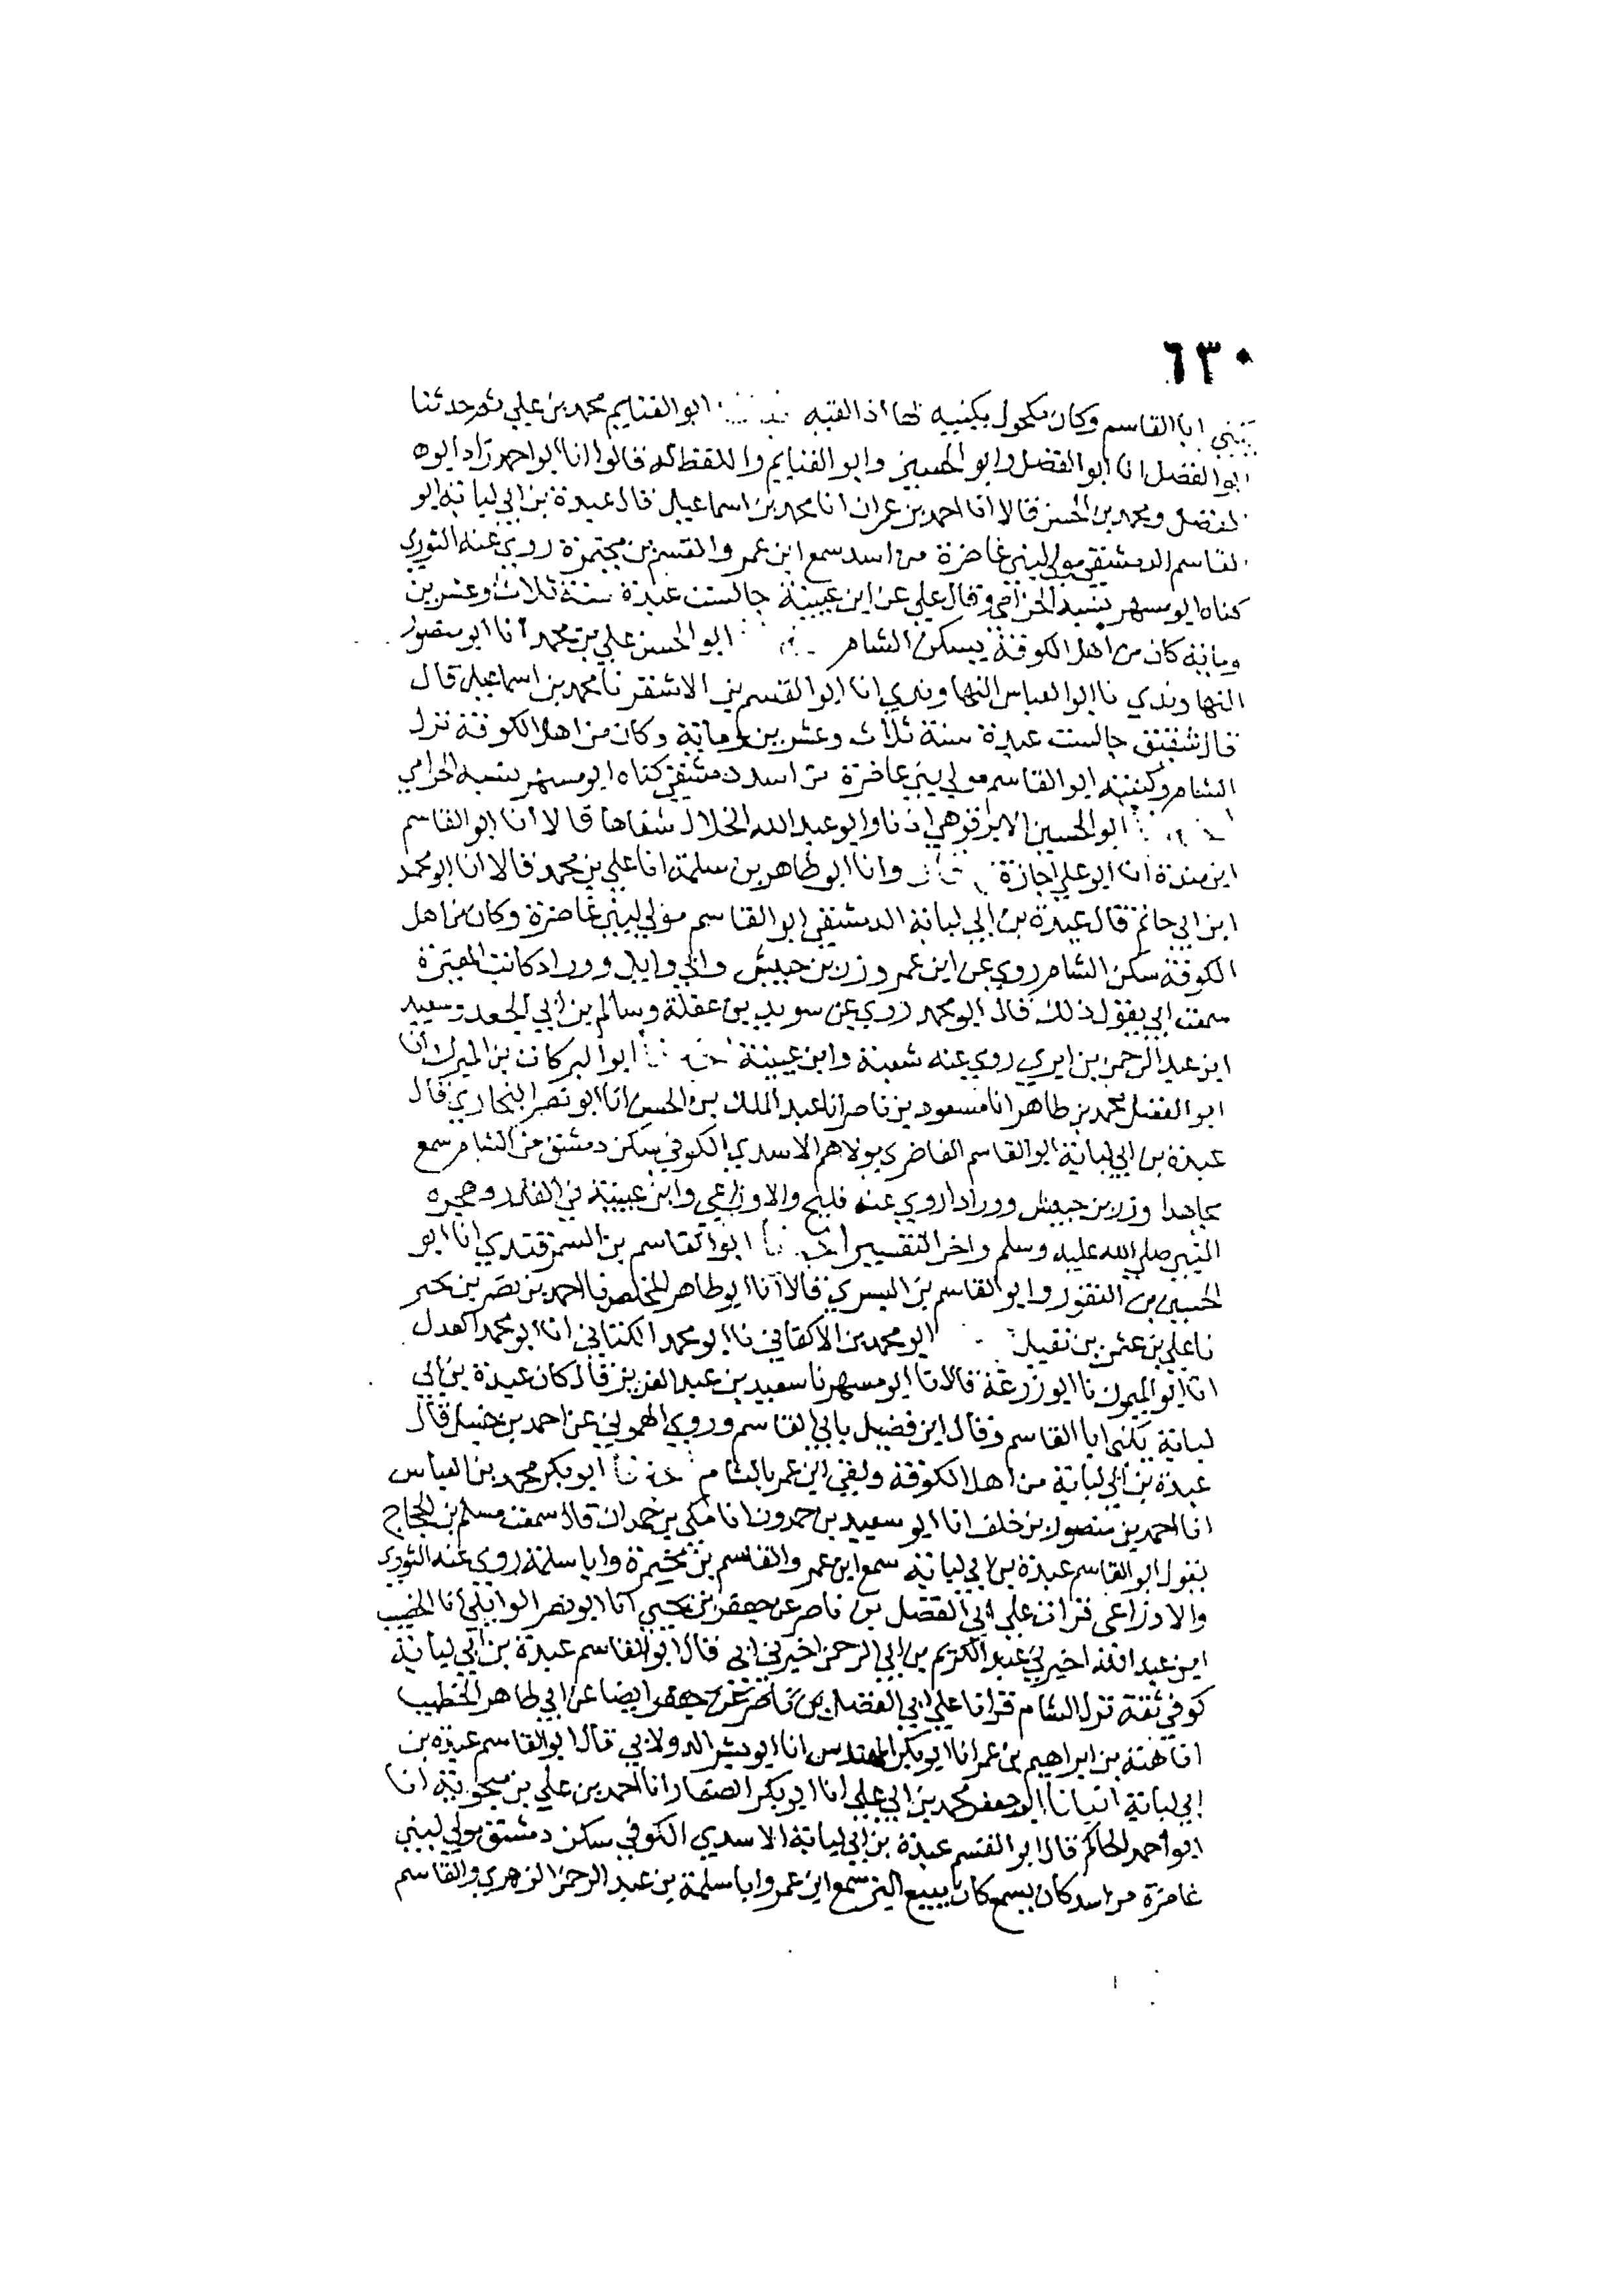 ٦٣٠
يكنى ابا القاسم وكان مكحول يكنيه بها اذا لقيه ابو الغنايم محمد بن علي ثم حدثنا
ابو الفضل انا ابو الفضل وابو الحسين وابو الغنايم واللفظ له قالوا انا ابو احمد زاد ابو
الفضل ومحمد بن الحسن قالا انا احمد بن عمران انا محمد بن اسماعيل قال عبدة بن ابي لبابة ابو
القاسم الدمشقي مولى لبني غاضرة من اسد سمع ابن عمر والقسم بن مخيمرة روى عنه الثوري
كناه ابو مسهر بنسبه الحزامي وقال علي عن ابن عيينة جالست عبدة سنة ثلاث وعشرين
وماية كان من اهل الكوفة يسكن الشام ابو الحسن علي بن محمد انا ابو منصور
النهاوندي نا ابو العباس النهاوندي انا ابو القسم بن الاشقر نا محمد بن اسماعيل قال
قال سفين جالست عبدة سنة ثلاث وعشرين وماية وكان من اهل الكوفة نزل
الشام وكنيته ابو القاسم مولى بني غاضرة من اسد دمشقي كناه ابو مسهر بنسبه الحزامي
ابو الحسين الابرقوهي اذنا وابو عبد الله الخلال شفاها قالا انا ابو القاسم
ابن مندة انا ابو علي اجازة وانا ابو طاهر بن سلمة انا علي بن محمد قالا انا ابو محمد
ابن ابي حاتم قال عبدة بن ابي لبابة الدمشقي ابو القاسم مولى لبني غاضرة وكان من اهل
الكوفة سكن الشام روى عن ابن عمر وزر بن حبيش وابي وايل ووراد كاتب المغيرة
سمعت ابي يقول ذلك قال ابو محمد روى عن سويد بن غفلة وسالم بن ابي الجعد وسعيد
ابن عبد الرحمن بن ابزي روى عنه شعبة وابن عيينة ابو البركات بن المبرك انا
ابو الفضل محمد بن طاهر انا مسعود بن ناصر انا عبد الملك بن الحسن انا ابو نصر البخاري قال
عبدة بن ابي لبابة ابو القاسم الغاضري مولاهم الاسدي الكوفي سكن دمشق من الشام سمع
مجاهدا وزر بن حبيش وورادا روى عنه فليح والاوزاعي وابن عيينة في القدر وهجرة
النبي صلى الله عليه وسلم واخر التفسير ابو القاسم بن السمرقندي انا ابو
الحسين بن النقور وابو القاسم بن البسري قالا انا ابو طاهر المخلص نا احمد بن نصر بن بحير
نا علي بن عثمن بن نفيل ابو محمد بن الاكفاني نا ابو محمد الكتاني انا ابو محمد العدل
انا ابو الميمون نا ابو زرعة قالا نا ابو مسهر نا سعيد بن عبد العزيز قال كان عبدة بن ابي
لبابة يكنى ابا القاسم وقال ابن فضيل بابي القاسم وروى الهموني عن احمد بن حنبل قال
عبدة بن ابي لبابة من اهل الكوفة ولقي ابن عمر بالشام ابو بكر محمد بن العباس
انا احمد بن منصور بن خلف انا ابو سعيد بن حمدون انا مكي بن حمدان قال سمعت مسلم بن الحجاج
يقول ابو القاسم عبدة بن ابي لبابة سمع ابن عمر والقاسم بن مخيمرة وابا سلمة روى عنه الثوري
والاوزاعي قرات على ابي الفضل بن ناصر عن جعفر بن يحيى انا ابو نصر الوايلي انا الخصيب
ابن عبد الله اخبرني عبد الكريم بن ابي الرحمن اخبرني ابي قال ابو القاسم عبدة بن ابي لبابة
كوفي ثقة نزل الشام قرانا على ابي الفضل بن ناصر عن جعفر ايضا عن ابي طاهر الخطيب
انا هبة بن ابراهيم بن عمر انا ابو بكر المهندس انا ابو بشر الدولابي قال ابو القاسم عبدة بن
ابي لبابة انبانا ابو جعفر محمد بن ابي علي انا ابو بكر الصفار انا احمد بن علي بن منجويه انا
ابو احمد الحاكم قال ابو القسم عبدة بن ابي لبابة الاسدي الكوفي سكن دمشق مولى لبني
غاضرة من اسد كان يسمع كان يبيع البز سمع ابن عمر وابا سلمة بن عبد الرحمن الزهري والقاسم